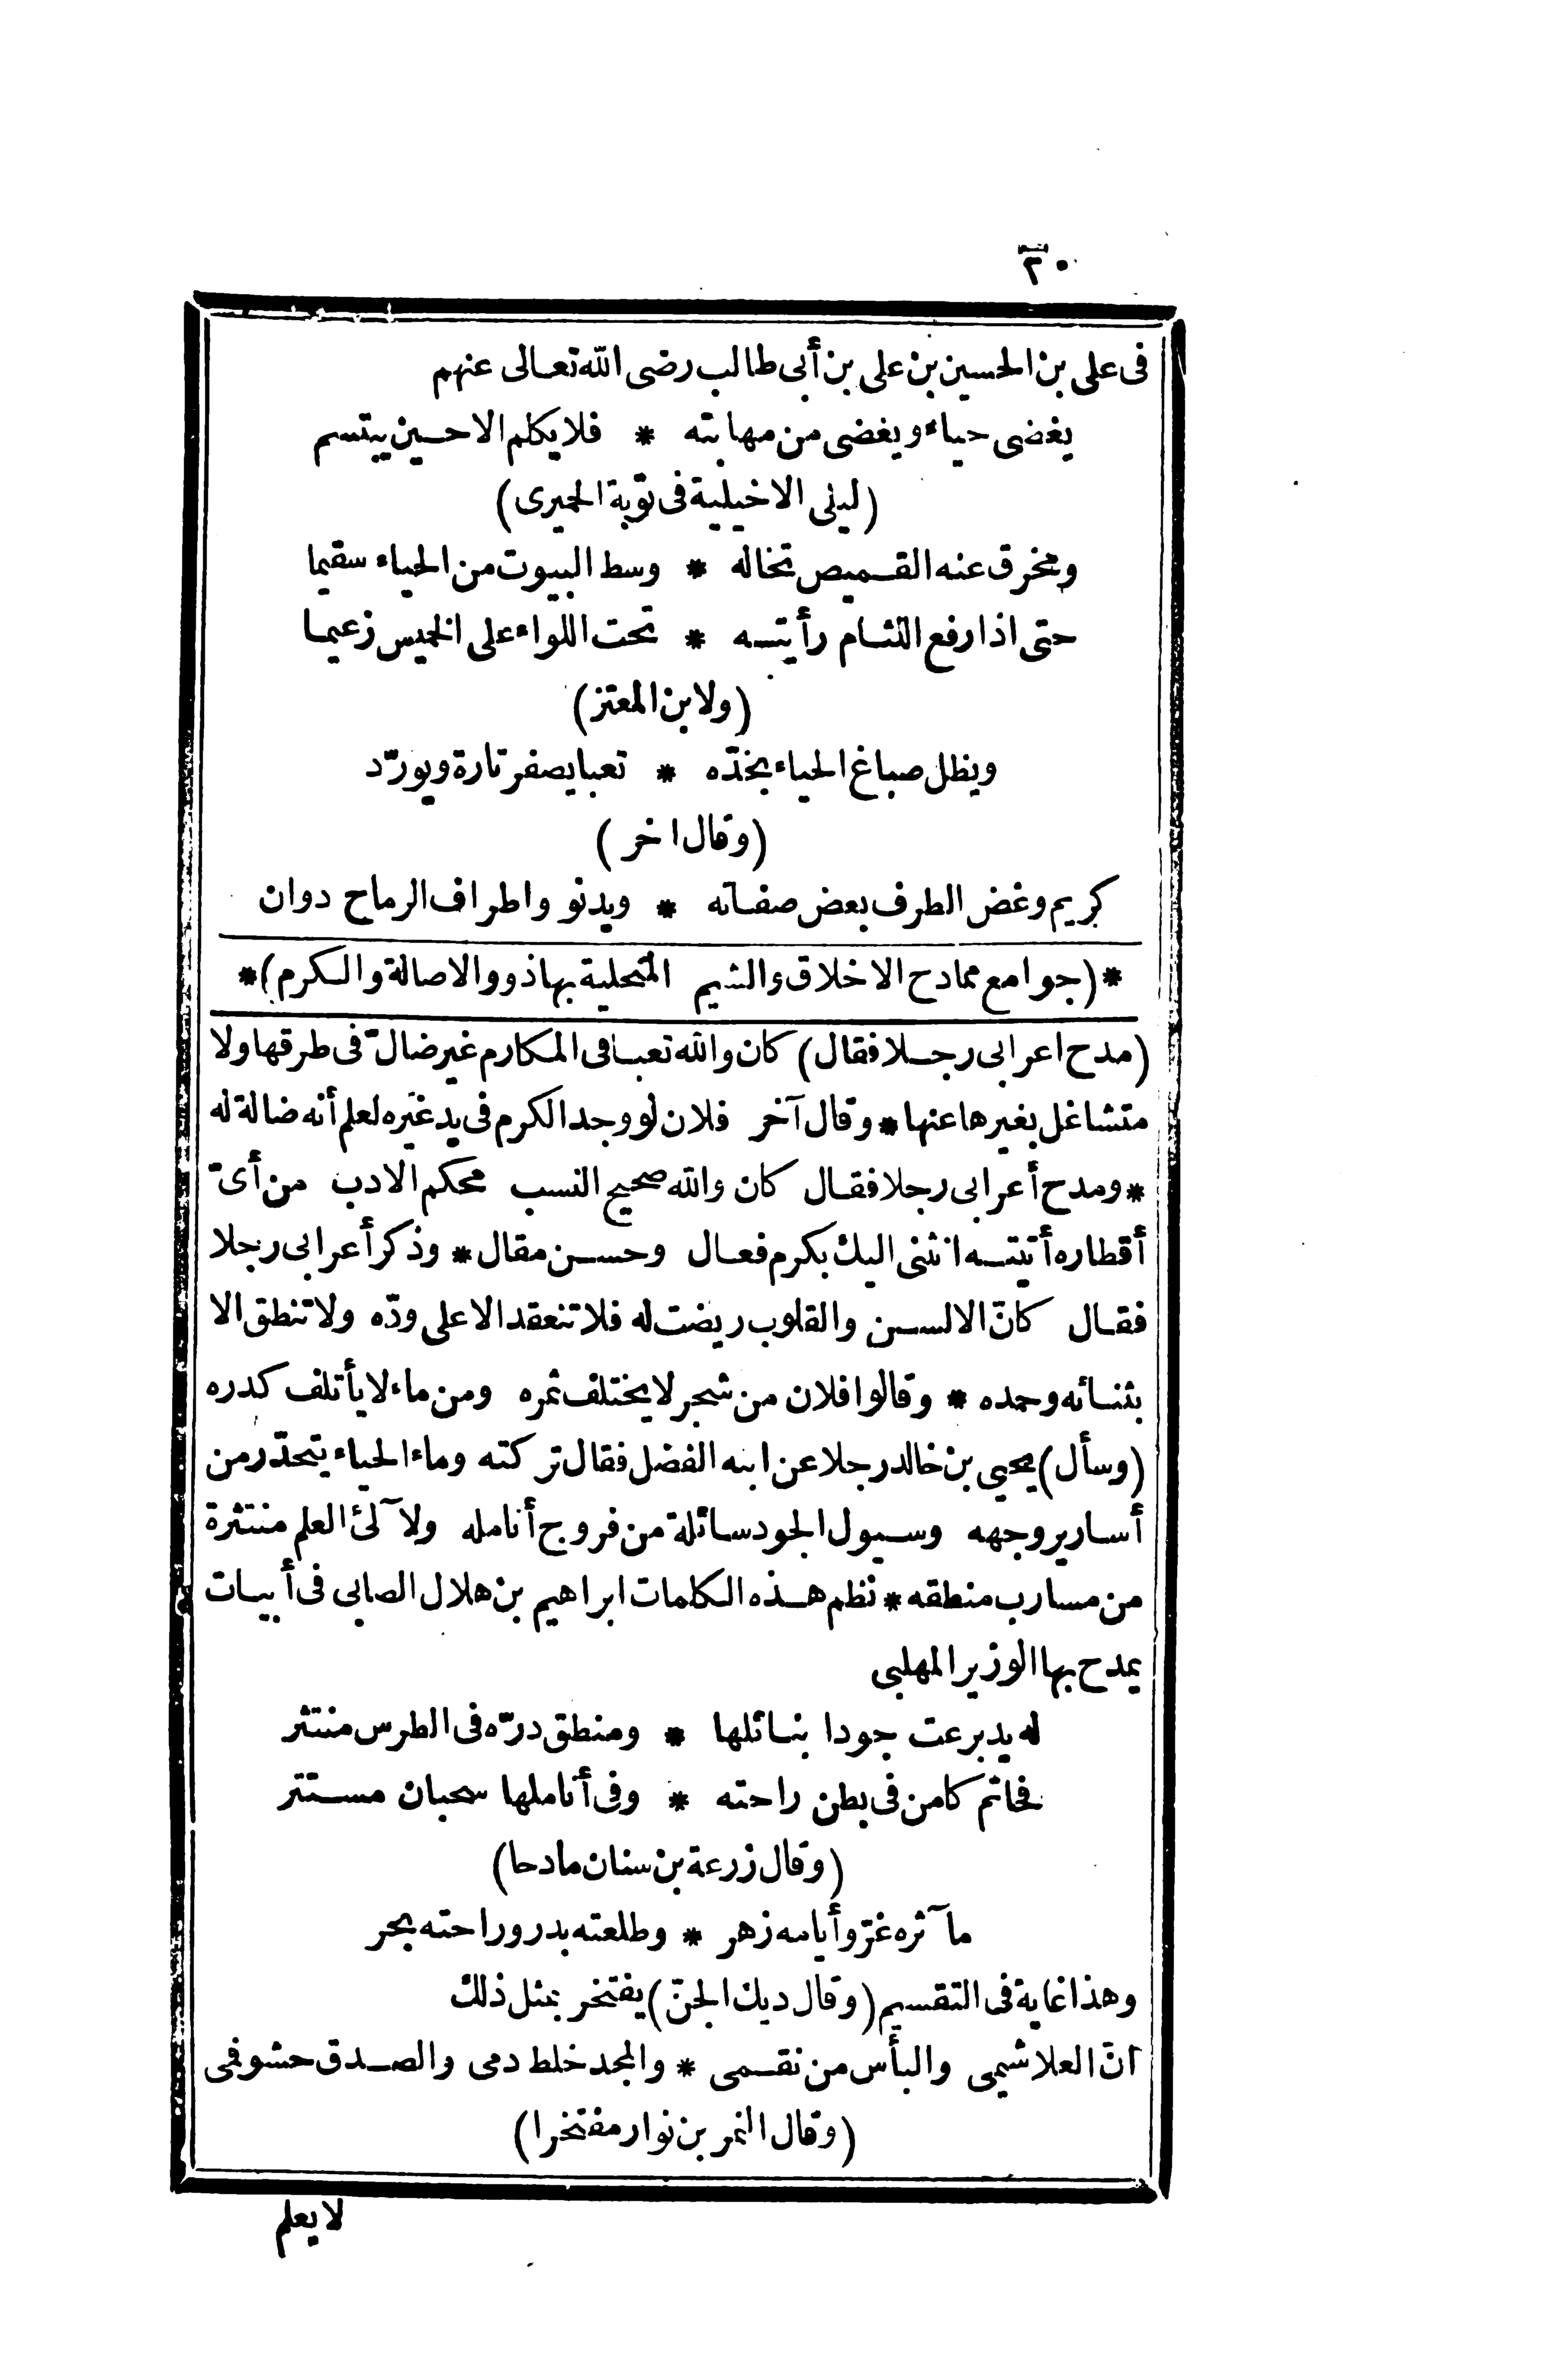 ٢٠
فى على بن الحسين بن على بن أبى طالب رضى الله تعالى عنهم
يغضى حياء ويغضى من مهابته * فلا يكلم الا حين يبتسم
(ليلى الاخيلية فى توبة الحميرى)
ومخرق عنه القميص تخاله * وسط البيوت من الحياء سقيما
حتى اذا رفع اللثام رأيته * تحت اللواء على الخميس زعيما
(ولابن المعتز)
ويظل صباغ الحياء بخدّه * تعبا يصفر تارة ويورّد
(وقال اخر)
كريم وغض الطرف بعض صفاته * ويدنو واطراف الرماح دوان
*(جوامع ممادح الاخلاق والشيم المتحلية بها ذوو الاصالة والكرم)*
(مدح اعرابى رجلا فقال) كان والله تعبا فى المكارم غير ضالّ فى طرقها ولا
متشاغل بغيرها عنها * وقال آخر فلان لو وجد الكرم فى يد غيره لعلم أنه ضالة له
* ومدح أعرابى رجلا فقال كان والله صحيح النسب محكم الادب من أىّ
أقطاره أتيته انثنى اليك بكرم فعال وحسن مقال * وذكر أعرابى رجلا
فقال كانّ الالسن والقلوب ريضت له فلا تنعقد الا على ودّه ولا تنطق الا
بثنائه وحمده * وقالوا فلان من شجر لا يختلف ثمره ومن ماء لا يأتلف كدره
(وسأل) يحيى بن خالد رجلا عن ابنه الفضل فقال تركته وماء الحياء يتحدّر من
أسارير وجهه وسيول الجود سائلة من فروج أنامله ولآلئ العلم منتثرة
من مسارب منطقه * نظم هذه الكلمات ابراهيم بن هلال الصابى فى أبيات
يمدح بها الوزير المهلبى
له يد برعت جودا بنائلها * ومنطق درّه فى الطرس منتثر
فحاتم كامن فى بطن راحته * وفى أناملها سحبان مستتر
(وقال زرعة بن سنان مادحا)
مآثره غرّ وأيامه زهر * وطلعته بدر وراحته بحر
وهذا غاية فى التقسيم (وقال ديك الجنّ) يفتخر بمثل ذلك
انّ العلا شيمى والبأس من نقمى * والمجد خلط دمى والصدق حشو فمى
(وقال النمر بن نوار مفتخرا)
لا يعلم